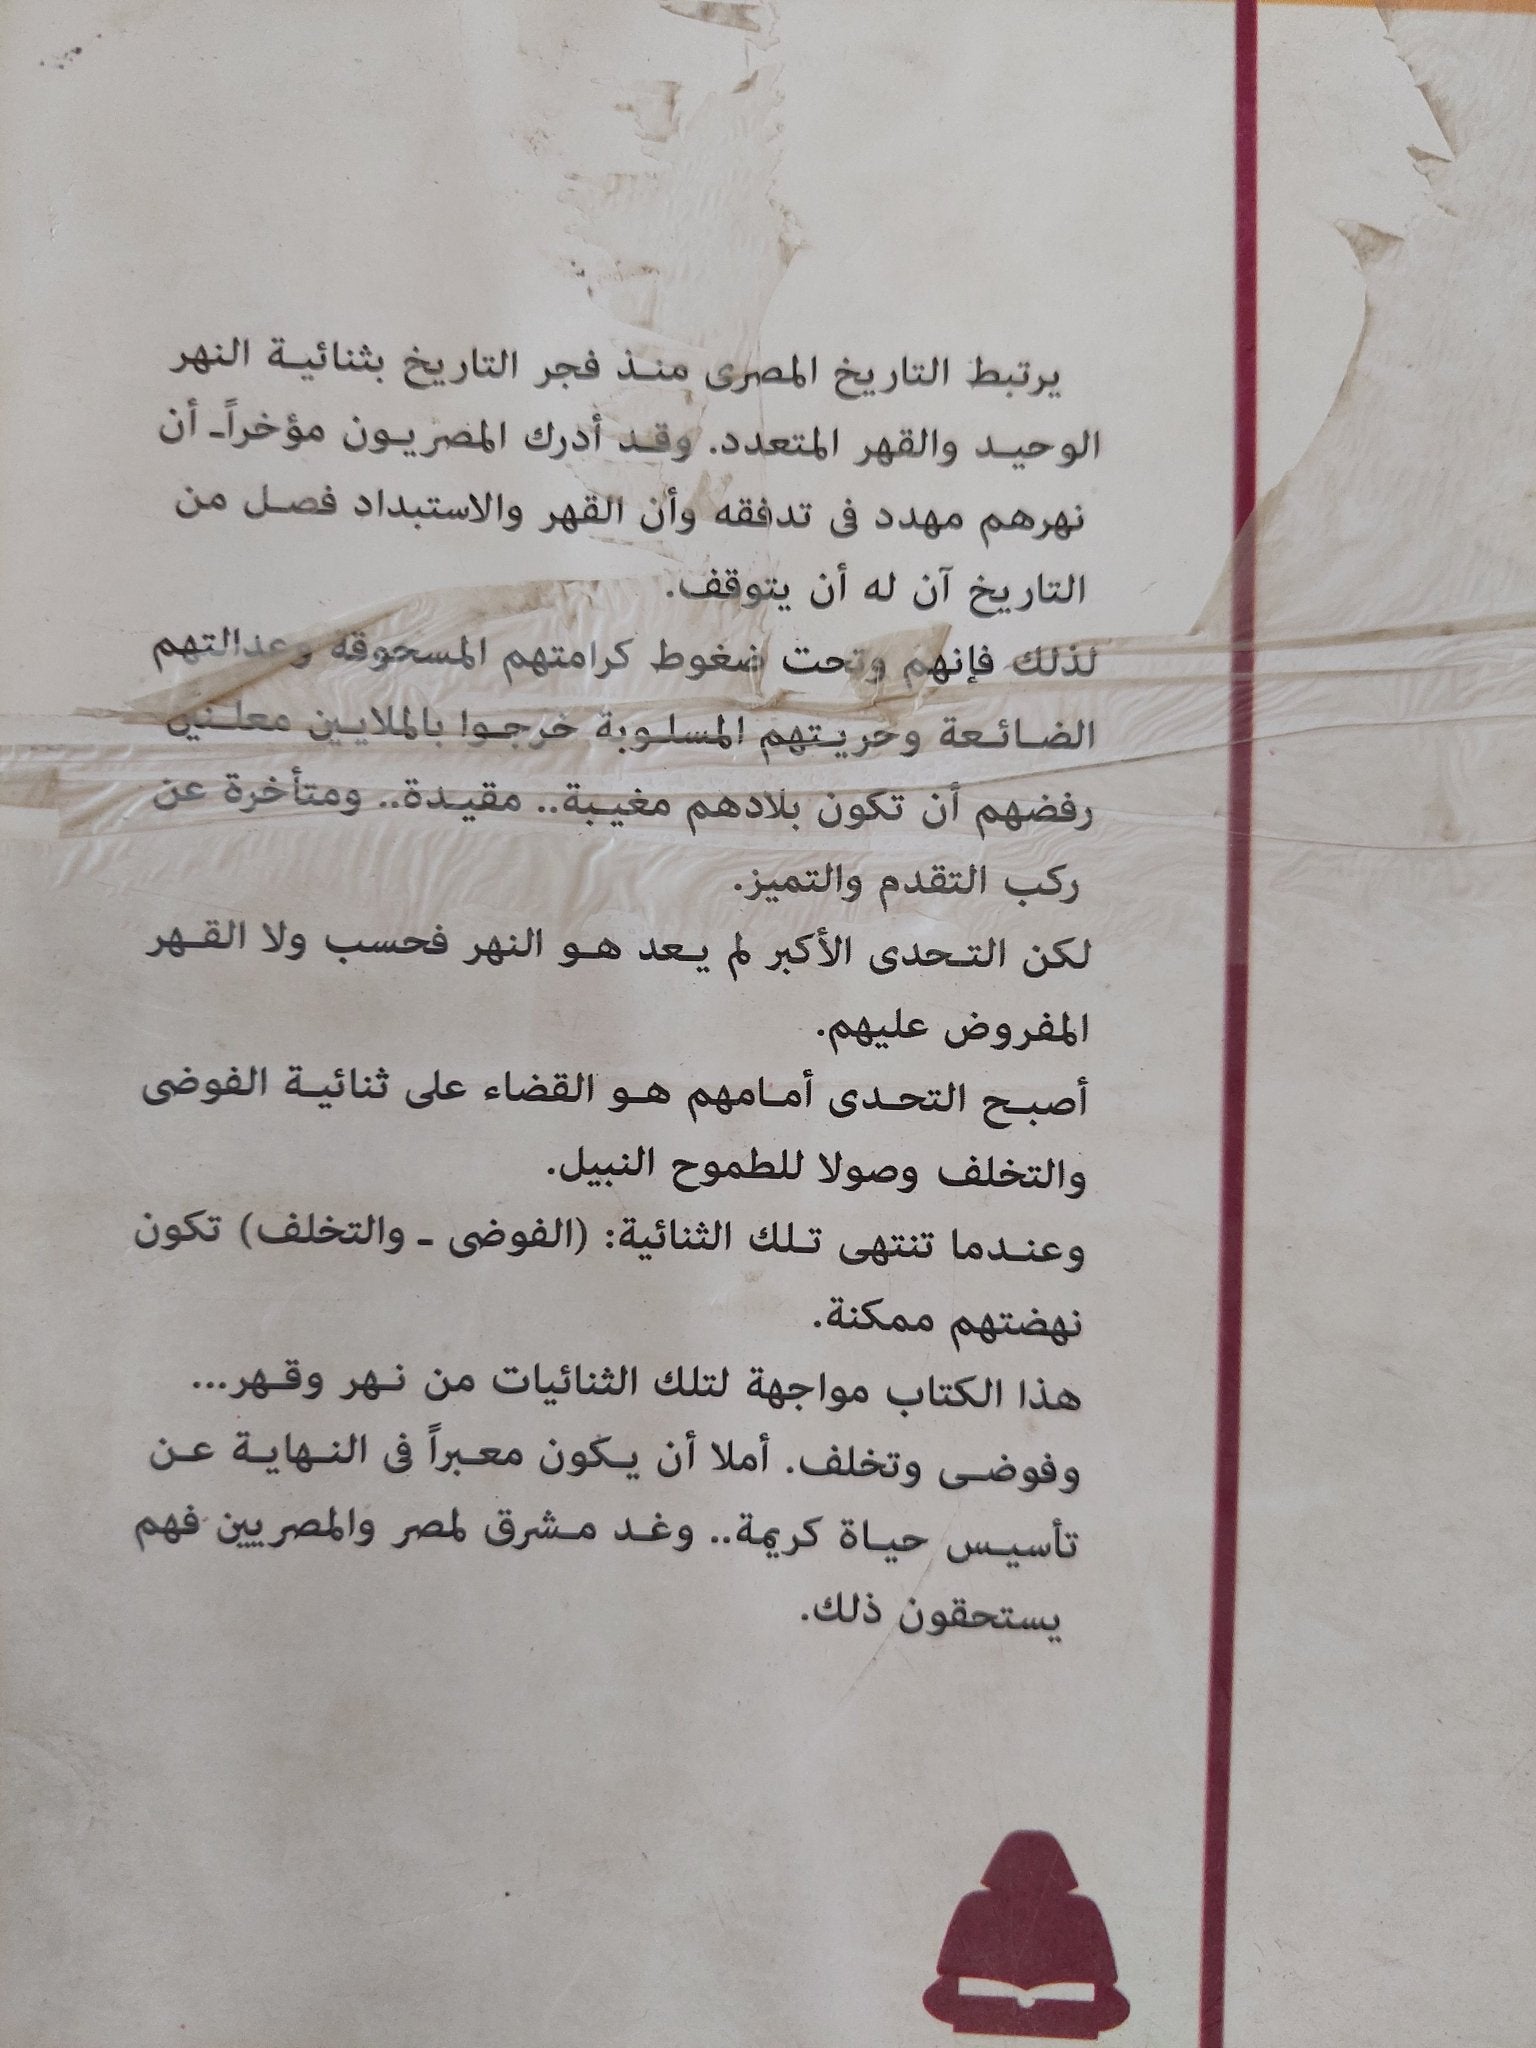 يرتبط التاريخ المصرى منـذ فجر التاريخ بثنائيـة النهر
الوحيـد والقهر المتعدد. وقـد أدرك المصريـون مؤخراًـ أن
نهرهم مهدد فى تدفقه وأن القهر والاستبداد فصـل من
التاريخ آن له أن يتوقف.
لذلك فإنهم وتحت ضغوط كرامتهم المسحوقه وعدالتهم
الضـائـعة وحريـتهم المسلـوبة خرجـوا بالملايـين معلـنين
رفضهم أن تكون بلادهم مغيـبة.. مقيـدة.. ومتأخرة عن
ركب التقدم والتميز.
لكن التـحدى الأكبر لم يـعد هـو النهر فحسب ولا القـهر
المفروض عليهم.
أصبـح التحـدى أمـامهم هـو القضاء على ثنائيـة الفوضى
والتخلف وصولا للطموح النبيل.
وعنـدما تنتهى تـلك الثنائية: (الفوضى ـ والتخلف) تكون
نهضتهم ممكنة.
هذا الكتاب مواجهة لتلك الثنائيات من نـهر وقـهر...
وفوضـى وتخلف. أملا أن يـكون معـبراً فى النـهايـة عـن
تأسيـس حيـاة كريمة.. وغـد مـشرق لمصر والمصريين فهم
يستحقون ذلك.